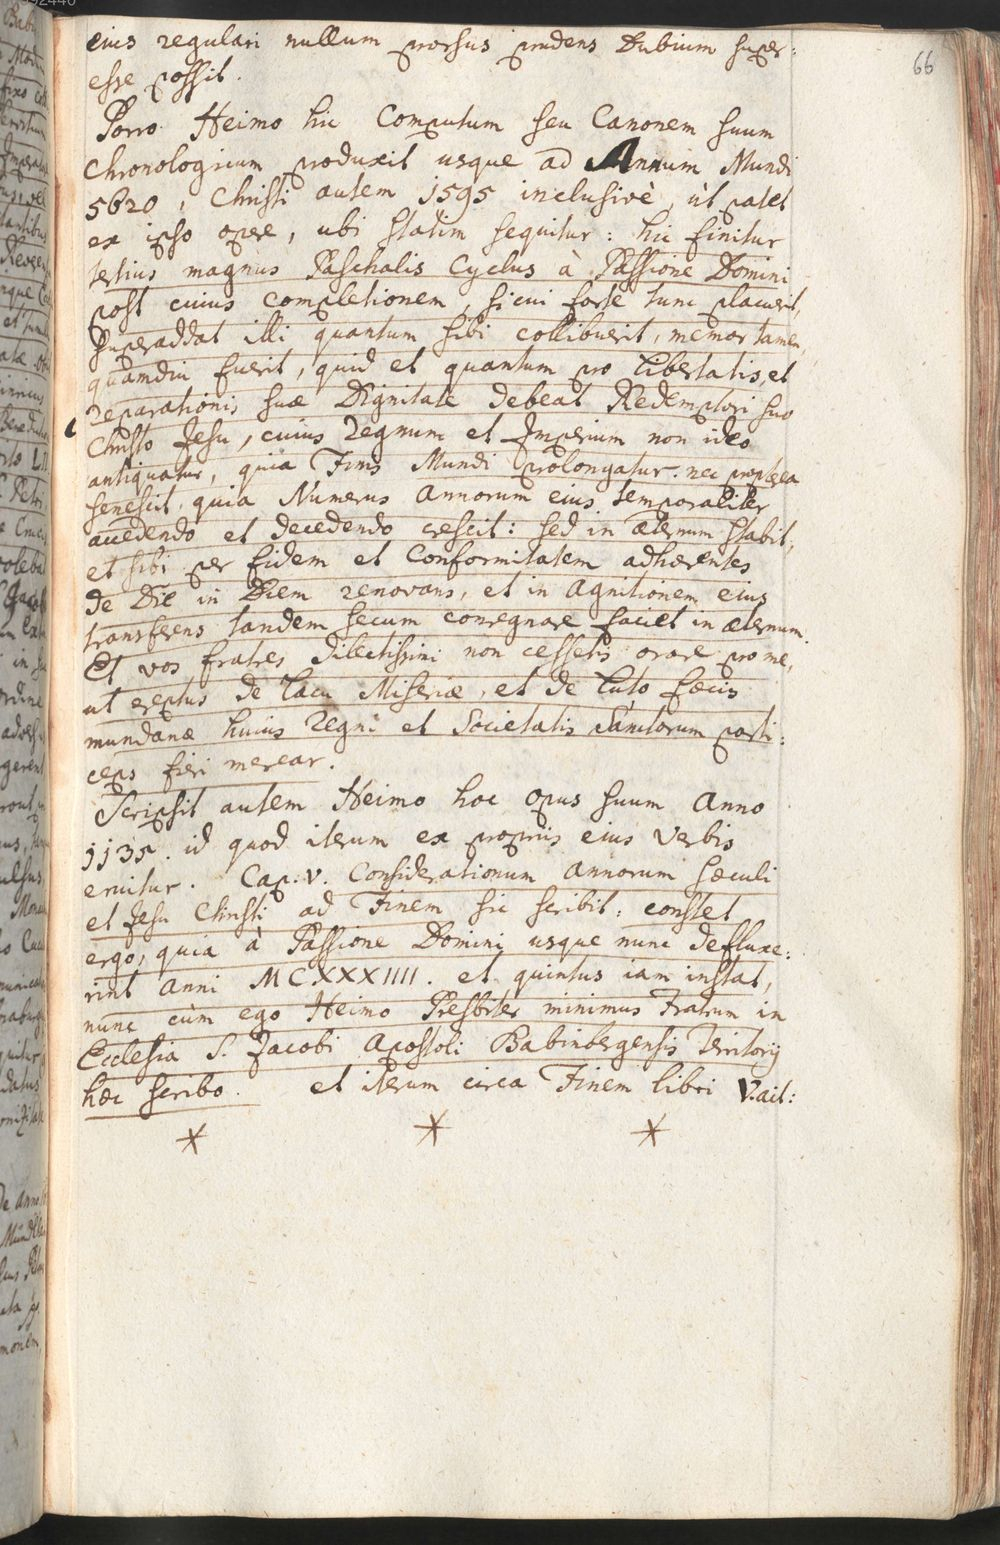 66
eius regulari nullum prorsus prudens Dubium super:
esse possit.
Porro Heimo hic Computum seu Canonem suum
Chronologicum produxit usque ad Annum Mundi
5620, Christi autem 1595 inclusivè, ùt patet
ex ipso opere, ubi statim sequitur: hic finitur
tertius magnus Paschalis Cyclus à Passione Domini
post cuius completionem, si cui forte tunc placuerit,
superaddat illi quantum sibi collibuerit, memor tamen,
quamdiu fuerit, quid et quantum pro libertatis, et
reparationis suæ Dignitate debeat Redemptori suo
Christo Jesu, cuius Regnum et Imperium non ideo
antiquatur, quia Finis Mundi prolongatur. nec propterea
senescit, quia Numerus Annorum eius temporaliter
accedendo et decedendo crescit: sed in æternum stabit,
et sibi per fidem et Conformitatem adhærentes
de Die in Diem renovans, et in Agnitionem eius
transferens tandem secum conregnare faciet in æternum.
Et vos fratres dilectissimi non cessetis orare pro me,
ut ereptus de lacu Miseriæ, et de luto fæcis
mundanæ huius Regni et Societatis Sanctorum parti:
ceps fieri merear.
Scripsit autem Heimo hoc opus suum Anno
1135. id quod iterum ex propriis eius Verbis
eruitur. Cap. V. Considerationum annorum sæculi
et Jesu Christi ad Finem sic scribit: constet
ergo, quia à Passione Domini usque nunc defluxe:
rint anni MCXXXIIII. et quintus iam instat,
nunc cùm ego Heimo Presbiter minimus Fratrum in
Ecclesia S. Jacobi Apostoli Babinbergensis Territorij
hæc scribo. et iterum circa Finem libri V. ait:
* * *